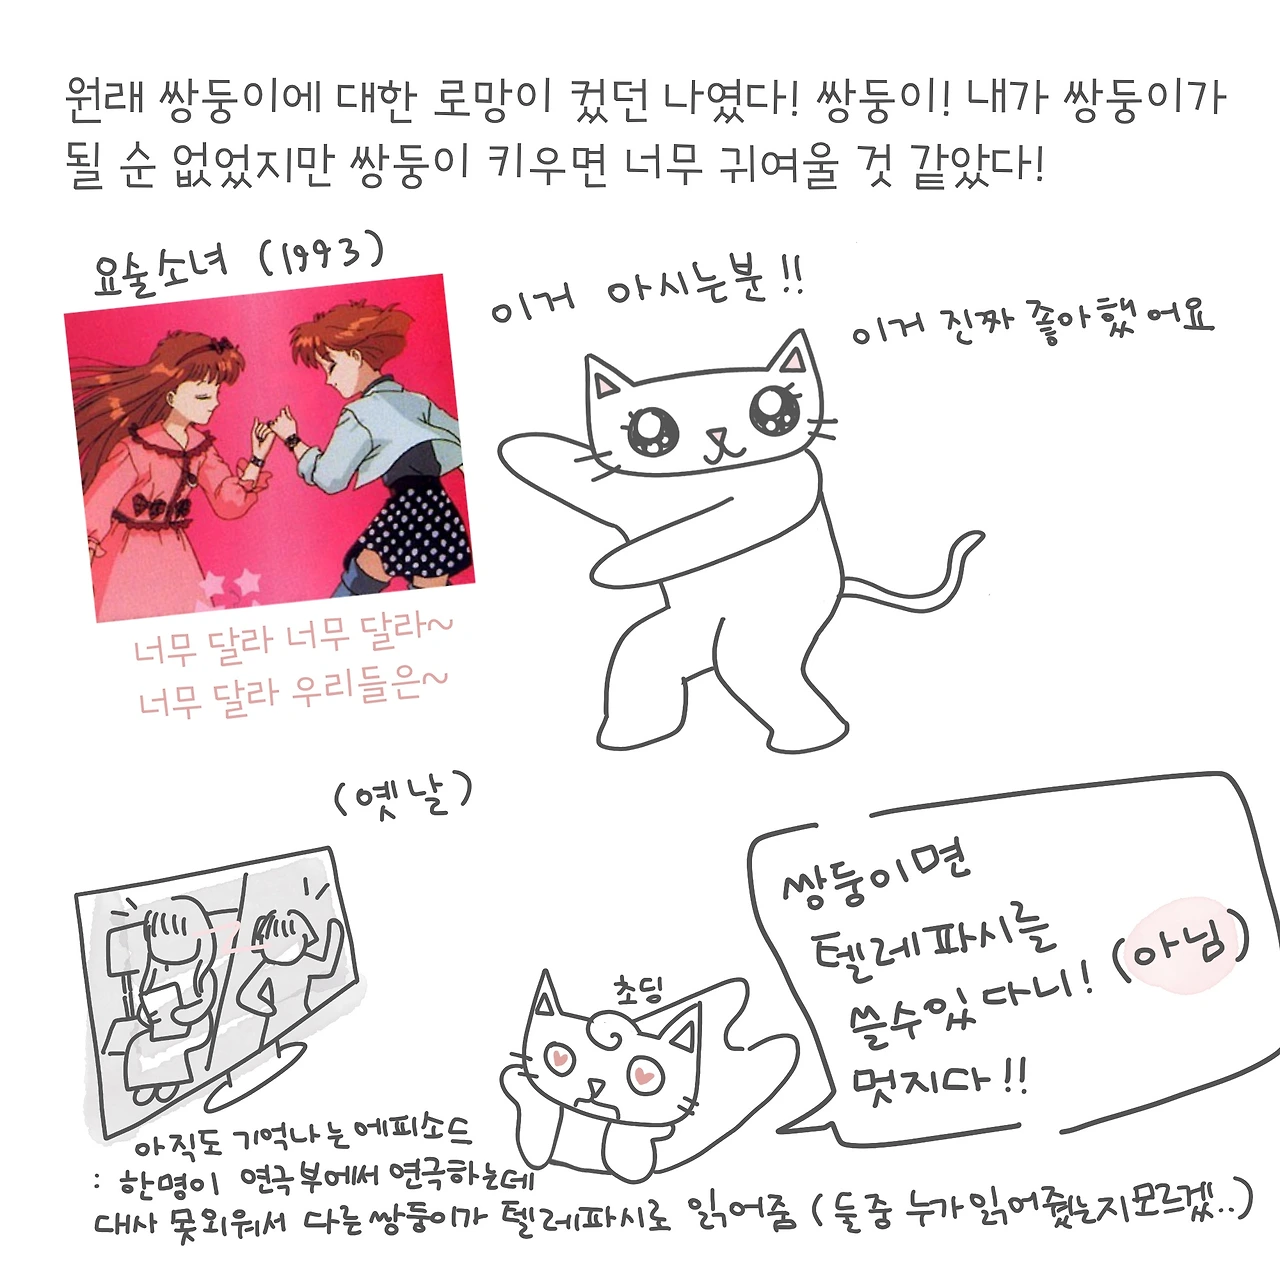 원래 쌍둥이에 대한 로망이 컸던 나였다! 쌍둥이! 내가 쌍둥이가
될 순 없었지만 쌍둥이 키우면 너무 귀여울 것 같았다!
요술소녀 (1993)
이거 아시는분!!
이거 진짜 좋아했어요
너무 달라 너무 달라~
너무 달라 우리들은~
(옛날)
초딩
쌍둥이면
텔레파시를
쓸수있다니! (아님)
멋지다!!
아직도 기억나는에피소드
: 한명이 연극부에서 연극하는데
대사 못외워서 다른쌍둥이가 텔레파시로 읽어줌 (둘중 누가읽어줬는지모르겠..)